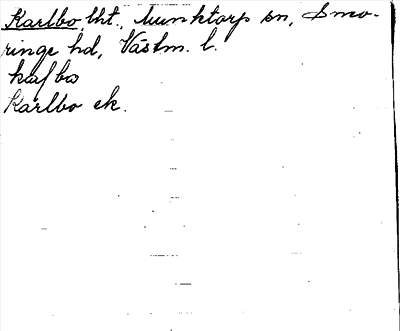 Karlbo, lht., Munktorp sn, Snä-
ringe hd, Västm. l.
kalbo
Karlbo ek.